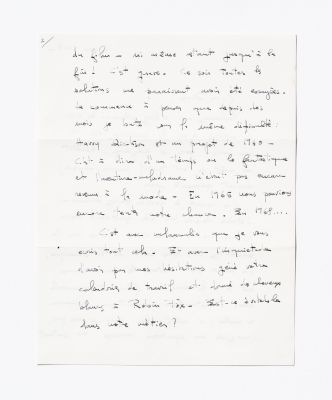 2/
du film - ni même étant jusqu'à la
fin! C'est grave. Ce soir toutes les
solutions me paraissent avoir été essayées.
Je commence à penser que depuis des
mois je bute sur la même difficulté:
Harry Dickson est un projet de 1960 -
c'est à dire d'un temps où le fantastique
et l'aventure-mélodrame n'était pas encore
revenu à la mode - En 1965 nous pouvions
encore tenter notre chance. En 1969....
C'est avec mélancolie que je vous
écris tout cela. Et avec l'inquiétude
d'avoir par mes hésitations gêné votre
calendrier de travail et donné des cheveux
blancs à Robin Fox. Est-ce inévitable
dans notre métier?